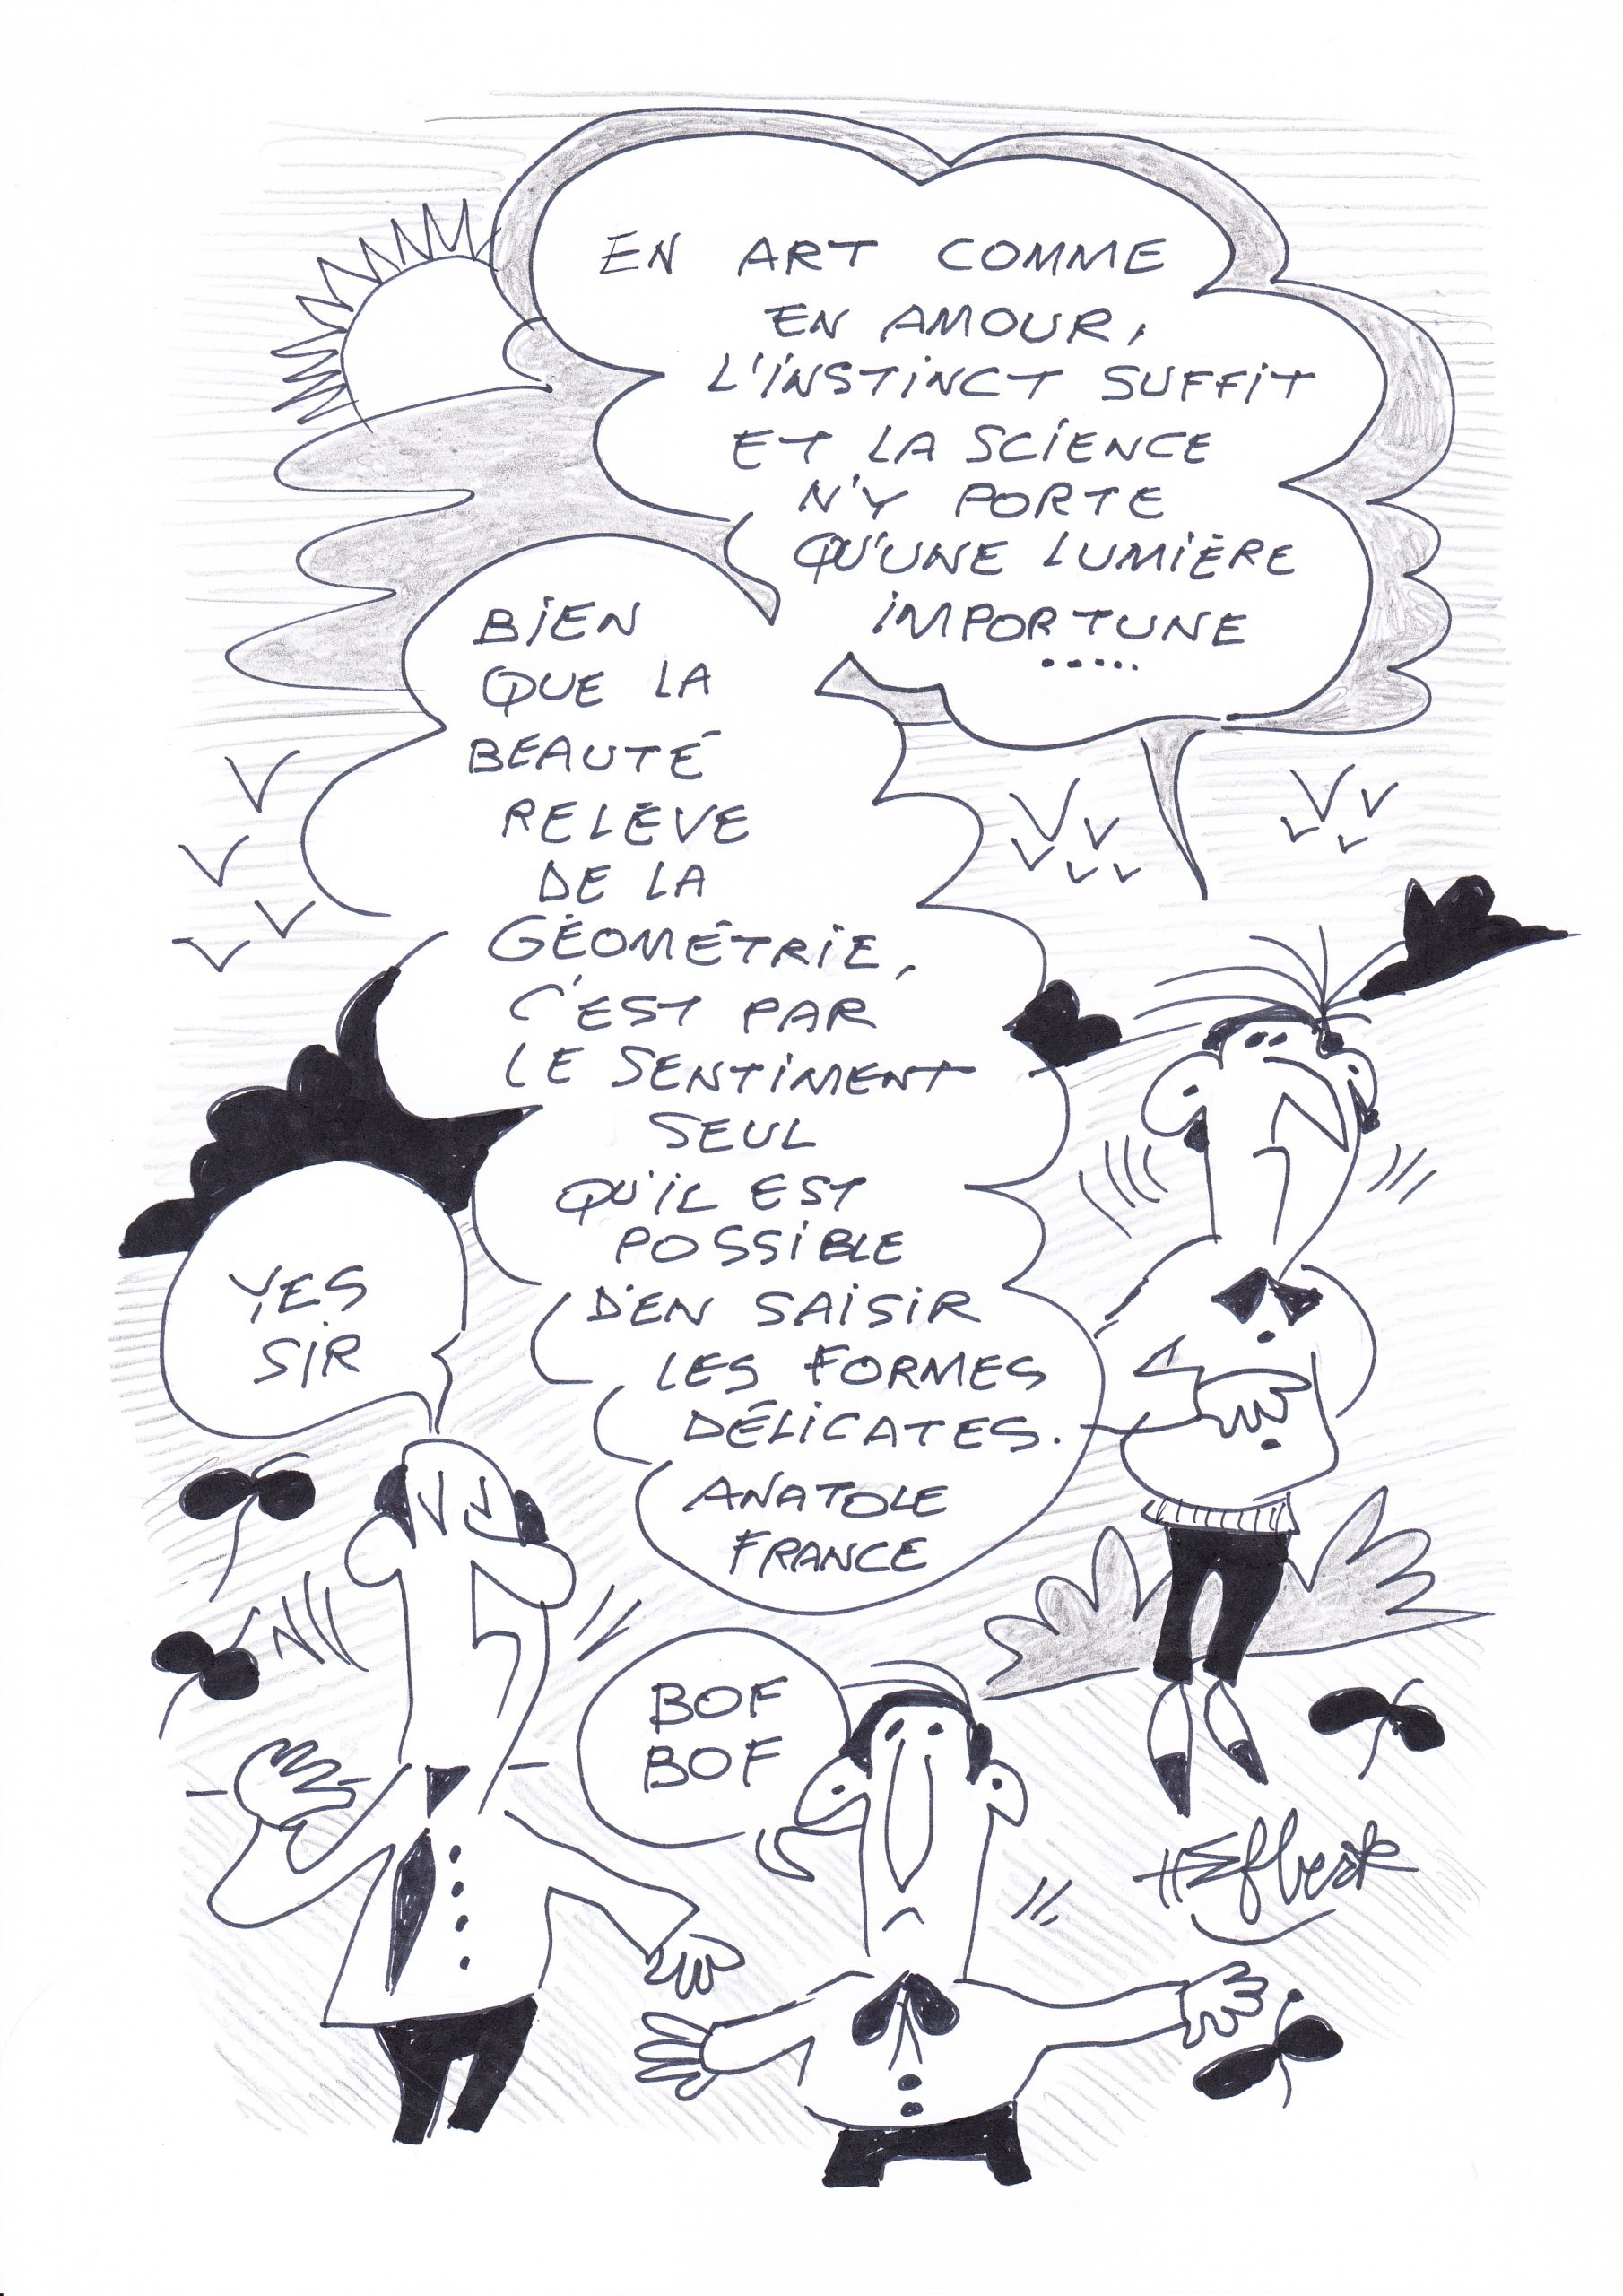 EN ART COMME
EN AMOUR,
L'INSTINCT SUFFIT
ET LA SCIENCE
N'Y PORTE
QU'UNE LUMIÈRE
IMPORTUNE
.....
BIEN
QUE LA
BEAUTÉ
RELÈVE
DE LA
GÉOMÉTRIE,
C'EST PAR
LE SENTIMENT
SEUL
QU'IL EST
POSSIBLE
D'EN SAISIR
LES FORMES
DÉLICATES.
ANATOLE
FRANCE
YES
SIR
BOF
BOF